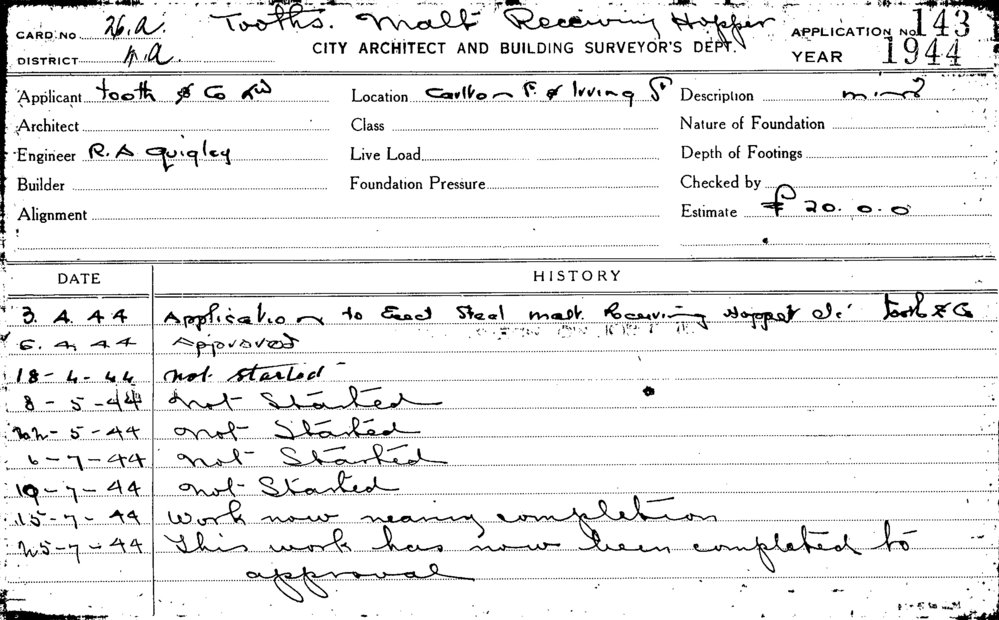 Tooths. Malt Receiving Hopper
CARD NO 26.a. CITY ARCHITECT AND BUILDING SURVEYOR'S DEPT. APPLICATION NO 143
DISTRICT n.a. YEAR 1944
Applicant Tooth & Co Ld Location Carlton & Irving St Description
Architect Class Nature of Foundation
Engineer R. A Quigley Live Load Depth of Footings
Builder Foundation Pressure Checked by
Alignment Estimate £ 20. 0. 0
DATE HISTORY
3. 4. 44 Application to Erect Steel malt Receiving Hopper Tooth & Co
6. 4. 44 Approved
18-4-44 not started
8-5-44 not Started
22-5-44 not Started
6-7-44 not Started
10-7-44 not Started
15-7-44 Work now nearing completion
25-7-44 This work has now been completed to
approval